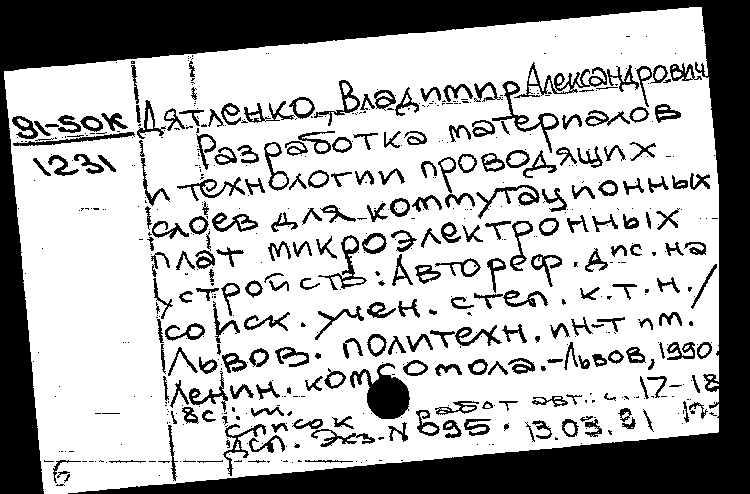 91-50К Дятленко, Владимир Александрович
1231 Разработка материалов
и технологии проводящих
слоев для коммутационных
плат микроэлектронных
устройств: Автореф. дис. на
соиск. учен. степ. к.т.н./
Львов. политехн. ин-т им.
Ленин. комсомола.-Львов, 1990.
18с.: ил. 17-18
список работ авт.: с.
дсп. Экз. N 095. 13.03.91
6